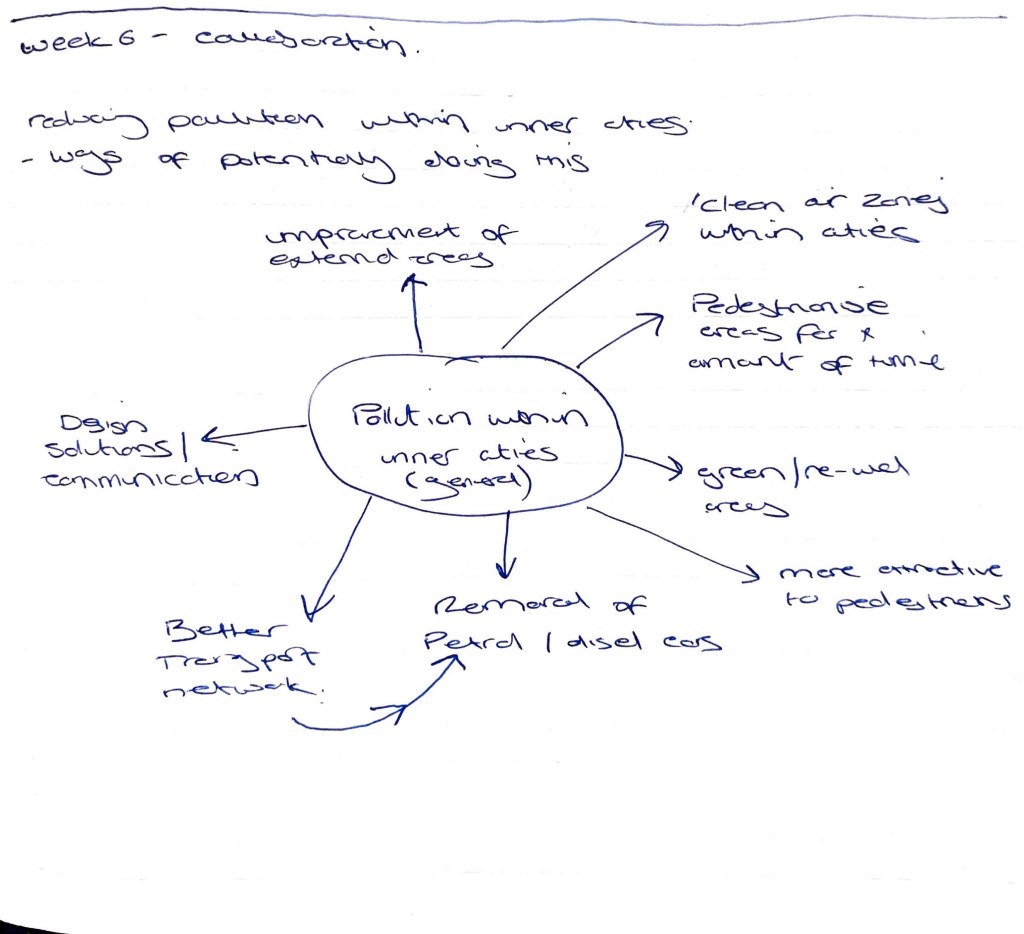 week 6 - collaboration.
reducing pollution within inner cities.
- ways of potentially doing this
improvement of
external areas
'clean air zones'
within cities
Pedestrianise
areas for x
amount of time
Pollution within
inner cities
(general)
Design
solutions/
communication
green/re-wild
areas
more attractive
to pedestrians
Better
Transport
network.
Removal of
Petrol / disel cars